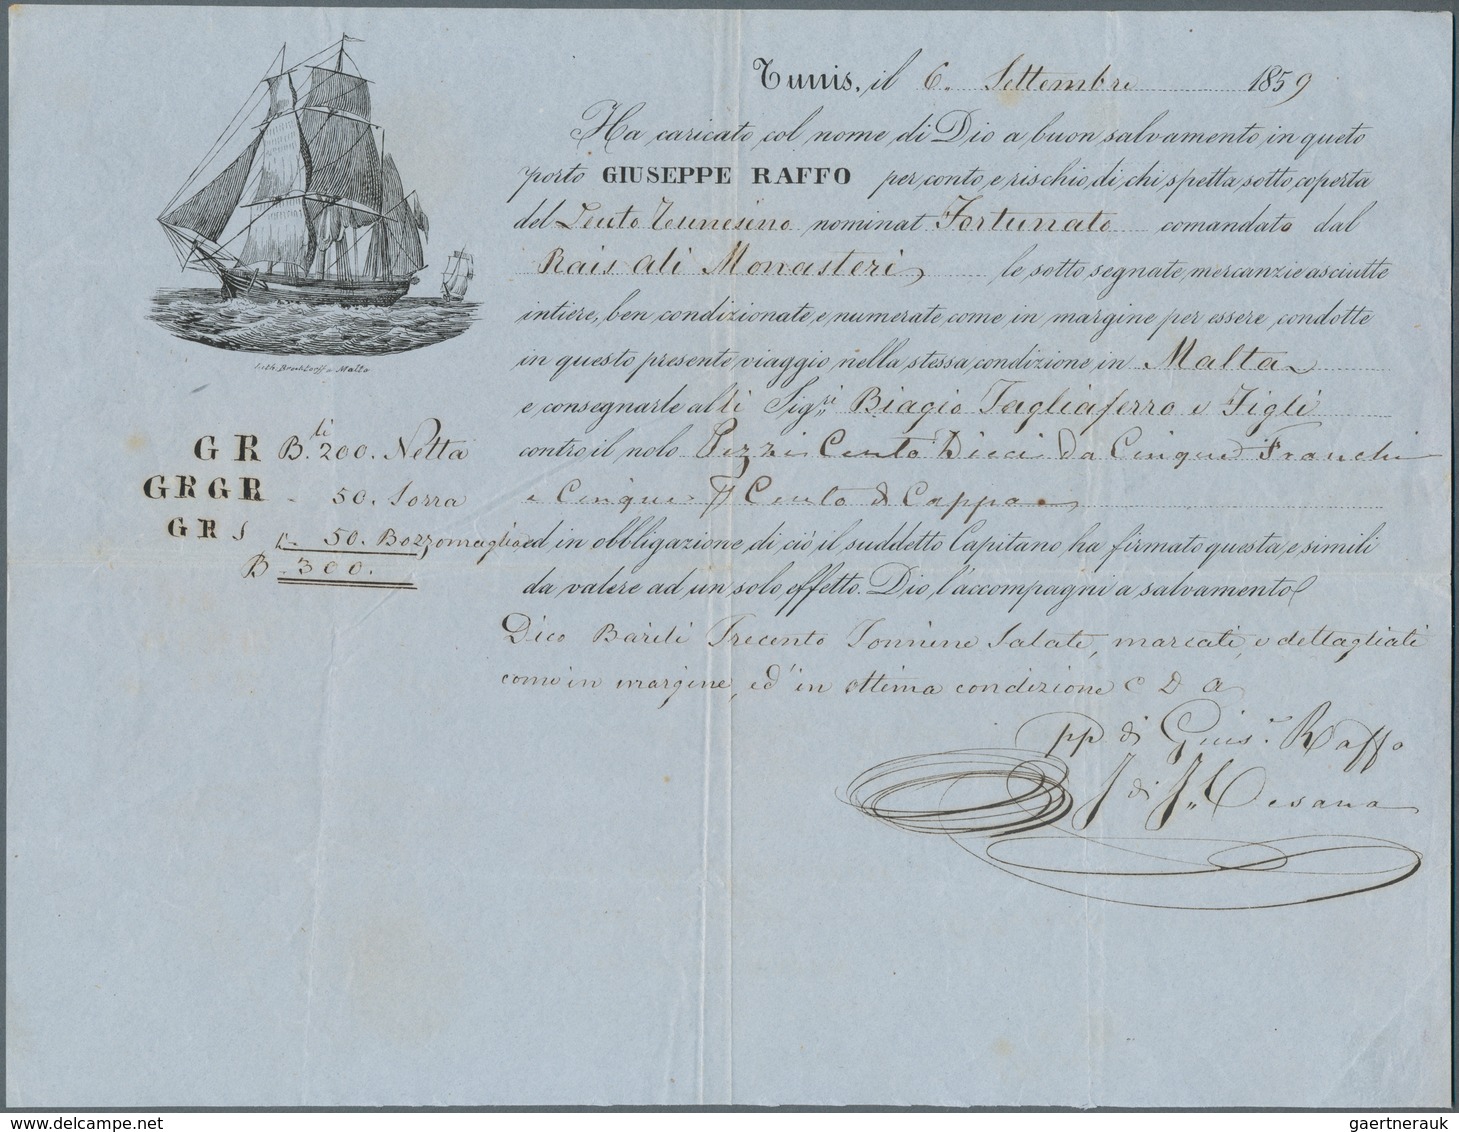 Tunis, il 6. Settembre 1859
Ha caricato col nome di Dio a buon salvamento in queto
porto GIUSEPPE RAFFO per conto e rischio, di chi spetta sotto coperta
del Leuto Tunesino nominat Fortunato comandato dal
Rais Ali Monasteri le sotto segnate, mercanzie asciutte
intiere, ben condizionate, e numerate come in margine per essere condotte
in questo presente viaggio nella stessa condizione in Malta
e consegnarle alli Sig.ri Biagio Tagliaferro e Figli
contro il nolo Pezzi Cento Dieci da Cinque Franchi
e Cinque Cento di Cappa
ed in obbligazione di ciò il suddetto Capitano ha firmato questa e simili
da valere ad un solo effetto. Dio l'accompagni a salvamento
Dico Barili Trecento Tonnine Salate, marcati, e dettagliati
come in margine, ed in ottima condizione C D A
pp di Gius.e Raffo
J di J.. Cesana
Lith. Malta
G R B.li 200. Netta
GR GR - 50. Sorra
G R S 50. Bozzomaglia
B. 300.
gaertnerauk